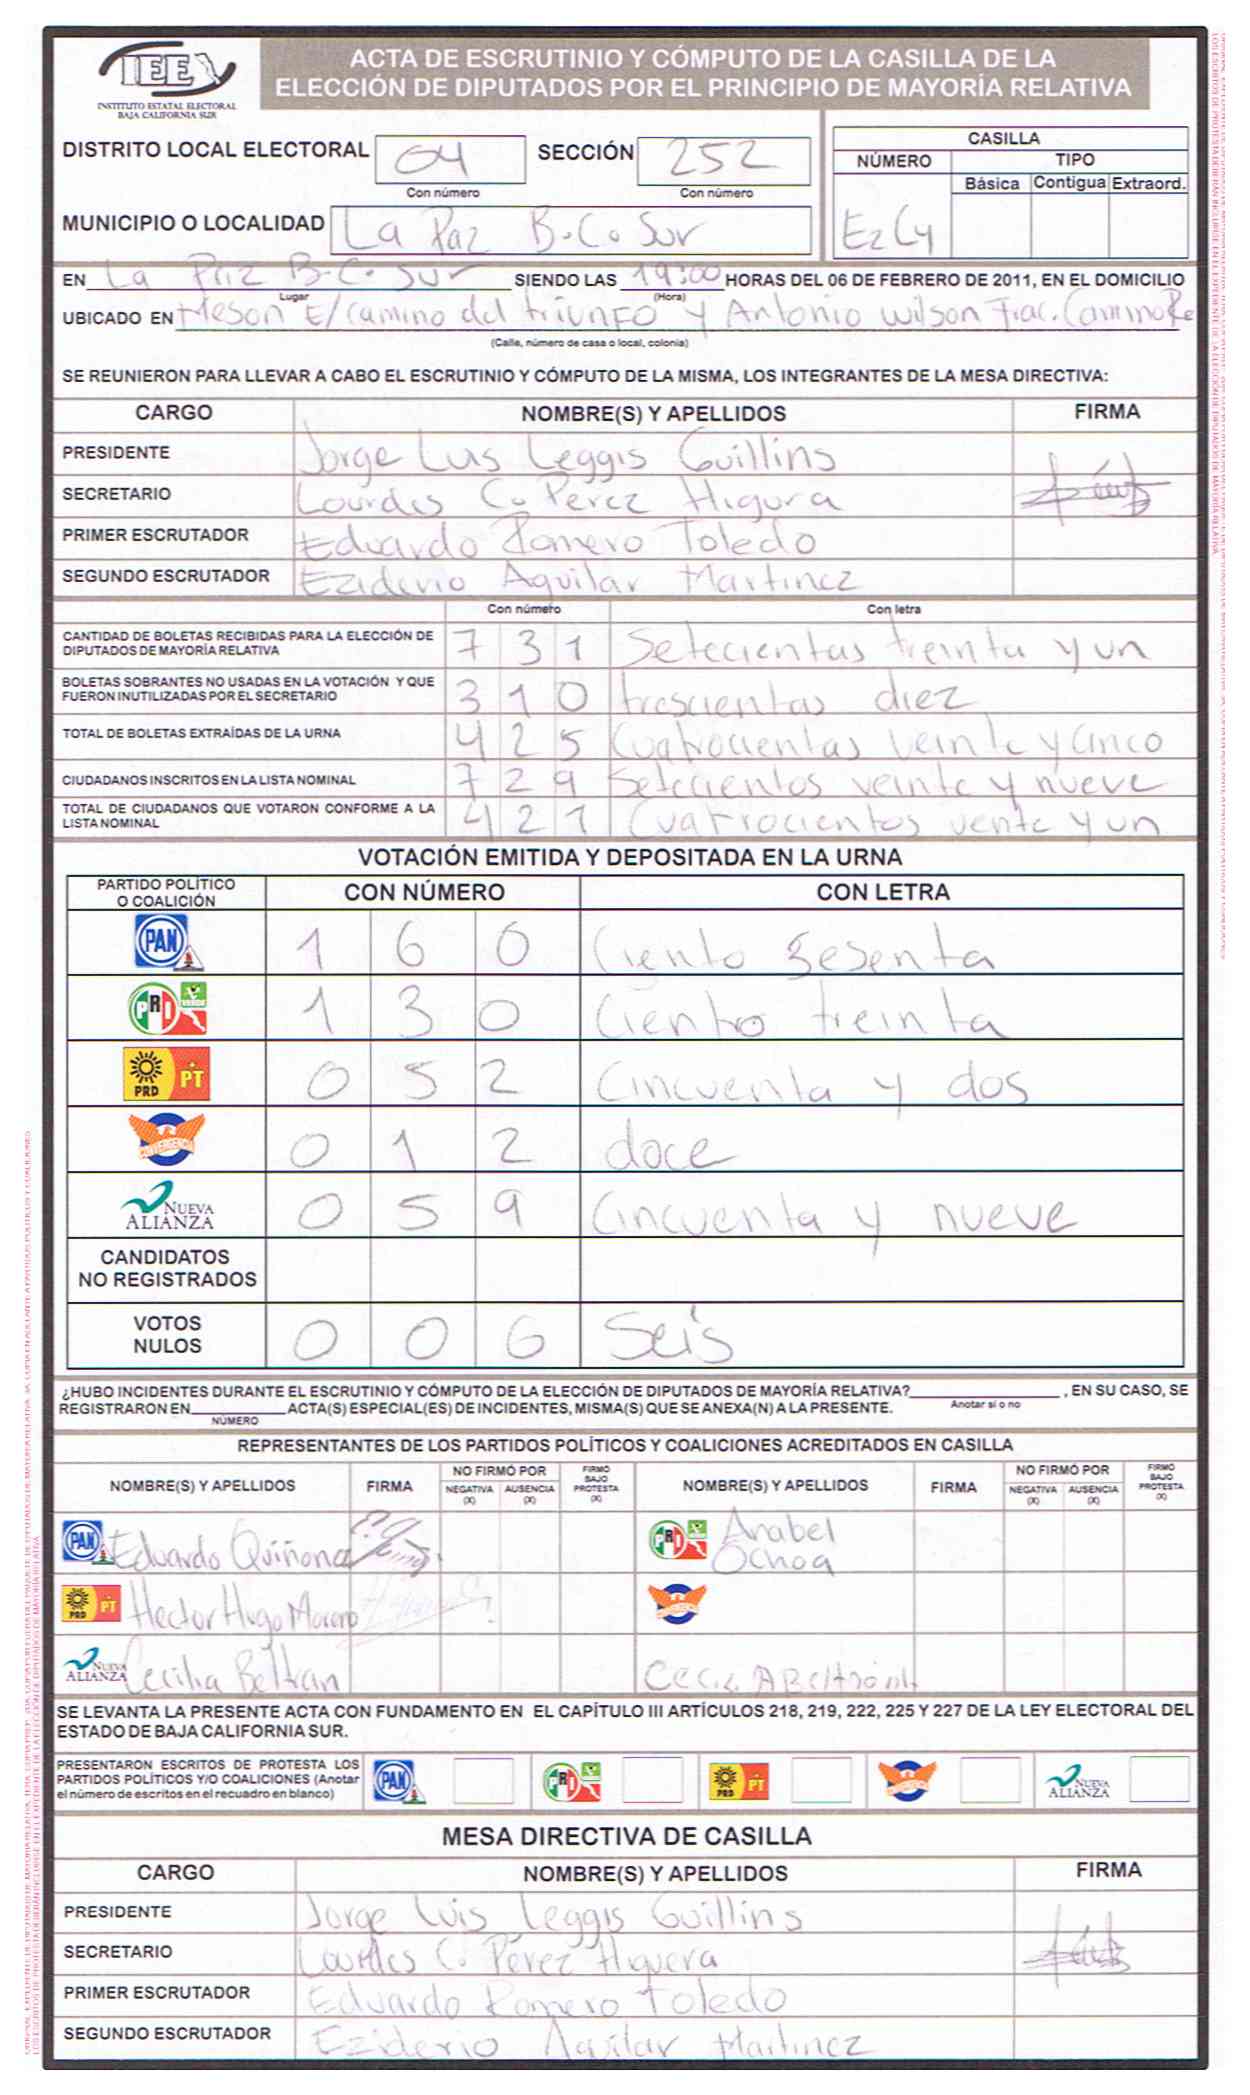 IEEA
INSTITUTO ESTATAL ELECTORAL
BAJA CALIFORNIA SUR
ACTA DE ESCRUTINIO Y CÓMPUTO DE LA CASILLA DE LA
ELECCIÓN DE DIPUTADOS POR EL PRINCIPIO DE MAYORÍA RELATIVA
DISTRITO LOCAL ELECTORAL 04 SECCIÓN 252
Con número Con número
MUNICIPIO O LOCALIDAD La Paz B.C. Sur
CASILLA
NÚMERO TIPO
Básica Contigua Extraord.
E2C4
EN La Paz B.C. Sur SIENDO LAS 19:00 HORAS DEL 06 DE FEBRERO DE 2011, EN EL DOMICILIO
Lugar (Hora)
UBICADO EN Meson E/camino del triunFo y Antonio Wilson Frac. Camino Re
(Calle, número de casa o local, colonia)
SE REUNIERON PARA LLEVAR A CABO EL ESCRUTINIO Y CÓMPUTO DE LA MISMA, LOS INTEGRANTES DE LA MESA DIRECTIVA:
CARGO NOMBRE(S) Y APELLIDOS FIRMA
PRESIDENTE Jorge Luis Leggis Guillins
SECRETARIO Lourdes C. Perez Higura
PRIMER ESCRUTADOR Eduardo Romero Toledo
SEGUNDO ESCRUTADOR Eziderio Aguilar Martinez
Con número Con letra
CANTIDAD DE BOLETAS RECIBIDAS PARA LA ELECCIÓN DE
DIPUTADOS DE MAYORÍA RELATIVA 7 3 1 Setecientas treinta y un
BOLETAS SOBRANTES NO USADAS EN LA VOTACIÓN Y QUE
FUERON INUTILIZADAS POR EL SECRETARIO 3 1 0 trescientas diez
TOTAL DE BOLETAS EXTRAÍDAS DE LA URNA 4 2 5 Cuatrocientas veinte y cinco
CIUDADANOS INSCRITOS EN LA LISTA NOMINAL 7 2 9 Setecientos veinte y nueve
TOTAL DE CIUDADANOS QUE VOTARON CONFORME A LA
LISTA NOMINAL 4 2 1 Cuatrocientos vente y un
VOTACIÓN EMITIDA Y DEPOSITADA EN LA URNA
PARTIDO POLÍTICO
O COALICIÓN CON NÚMERO CON LETRA
PAN 1 6 0 Ciento sesenta
PRI VERDE 1 3 0 Ciento treinta
PRD PT 0 5 2 Cincuenta y dos
CONVERGENCIA 0 1 2 doce
NUEVA ALIANZA 0 5 9 Cincuenta y nueve
CANDIDATOS
NO REGISTRADOS
VOTOS
NULOS 0 0 6 Seis
¿HUBO INCIDENTES DURANTE EL ESCRUTINIO Y CÓMPUTO DE LA ELECCIÓN DE DIPUTADOS DE MAYORÍA RELATIVA? , EN SU CASO, SE
Anotar sí o no
REGISTRARON EN ACTA(S) ESPECIAL(ES) DE INCIDENTES, MISMA(S) QUE SE ANEXA(N) A LA PRESENTE.
NÚMERO
REPRESENTANTES DE LOS PARTIDOS POLÍTICOS Y COALICIONES ACREDITADOS EN CASILLA
NOMBRE(S) Y APELLIDOS FIRMA NO FIRMÓ POR NEGATIVA (X) AUSENCIA (X) FIRMÓ BAJO PROTESTA (X) NOMBRE(S) Y APELLIDOS FIRMA NO FIRMÓ POR NEGATIVA (X) AUSENCIA (X) FIRMÓ BAJO PROTESTA (X)
PAN Eduardo Quiñonez PRI Anabel Ochoa
PRD PT Hector Hugo Moreno CONVERGENCIA
NUEVA ALIANZA Cecilia Beltran
SE LEVANTA LA PRESENTE ACTA CON FUNDAMENTO EN EL CAPÍTULO III ARTÍCULOS 218, 219, 222, 225 Y 227 DE LA LEY ELECTORAL DEL
ESTADO DE BAJA CALIFORNIA SUR.
PRESENTARON ESCRITOS DE PROTESTA LOS
PARTIDOS POLÍTICOS Y/O COALICIONES (Anotar
el número de escritos en el recuadro en blanco)
PAN PRI PRD PT CONVERGENCIA NUEVA ALIANZA
MESA DIRECTIVA DE CASILLA
CARGO NOMBRE(S) Y APELLIDOS FIRMA
PRESIDENTE Jorge Luis Leggis Guillins
SECRETARIO Lourdes C. Pérez Higuera
PRIMER ESCRUTADOR Eduardo Romero Toledo
SEGUNDO ESCRUTADOR Eziderio Aguilar Martinez